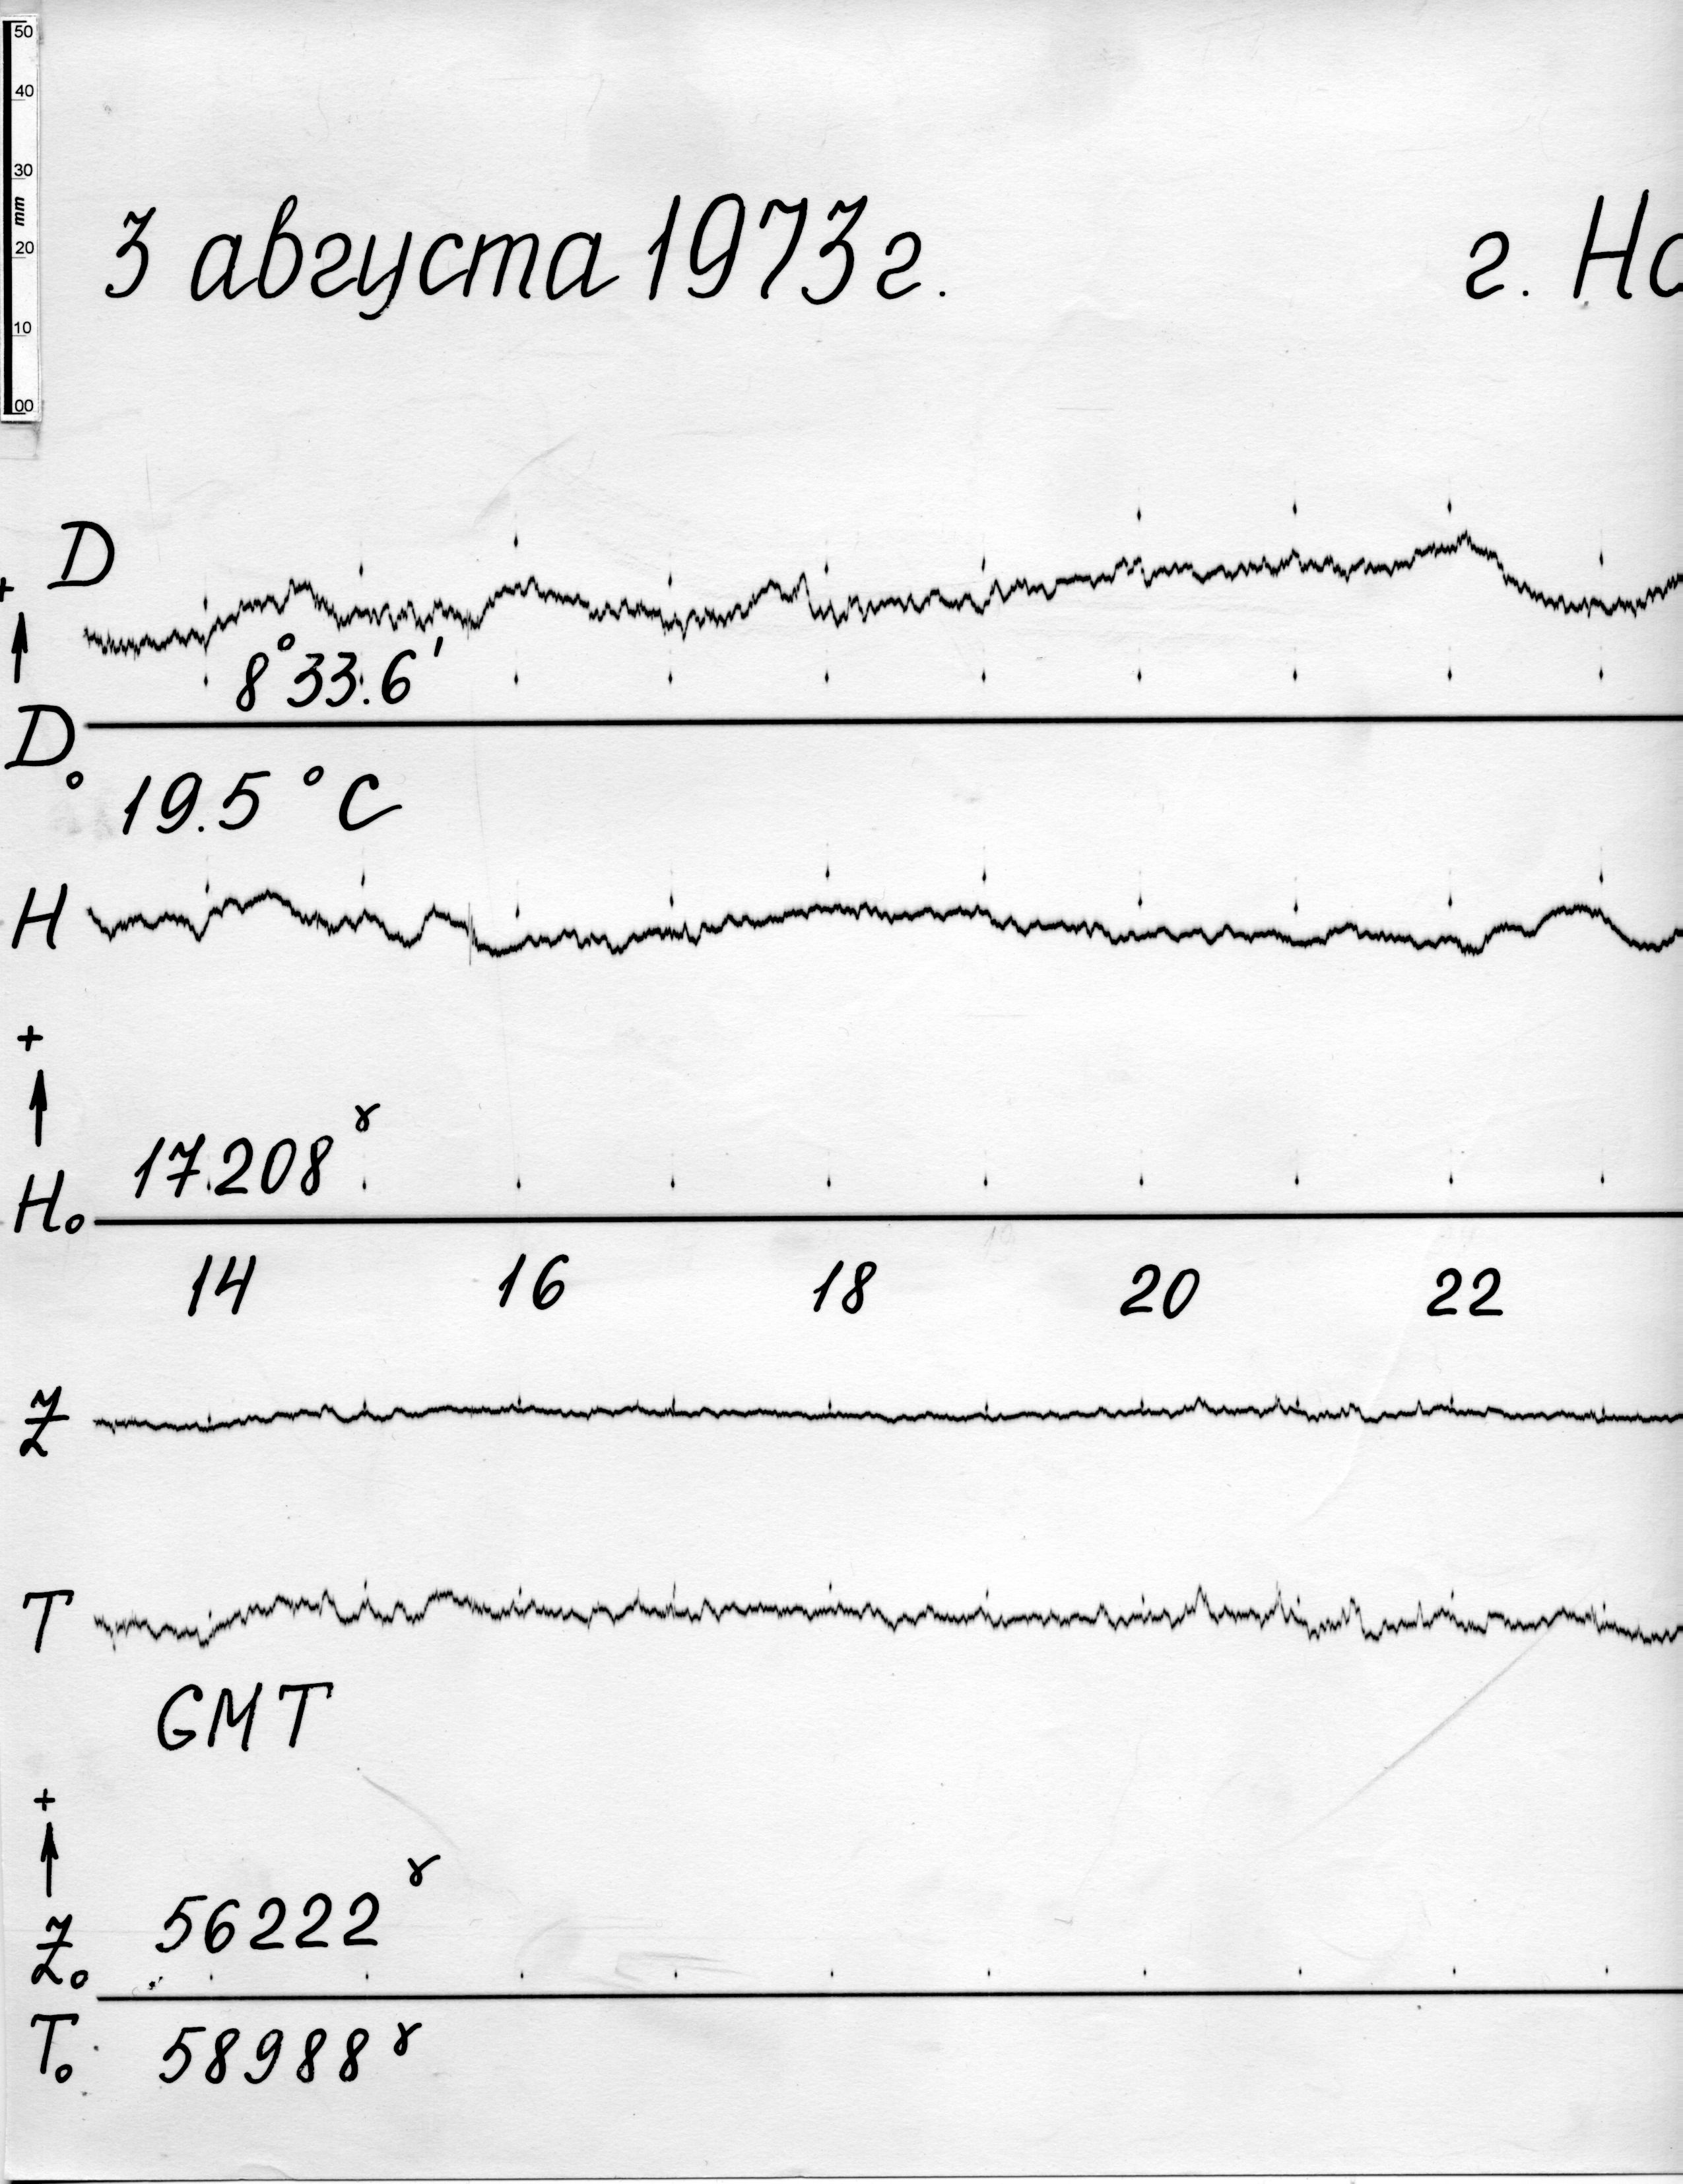 50
40
30
mm
20
10
00
3 августа 1973г. г. Но
D
+
8°33.6'
D₀
19.5°C
H
+
17.208ˠ
H₀
14 16 18 20 22
Z
T
GMT
+
56222ˠ
Z₀
T₀ 58988ˠ